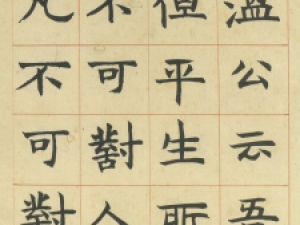 温公云吾
但平生所
不可對人
凡不可對